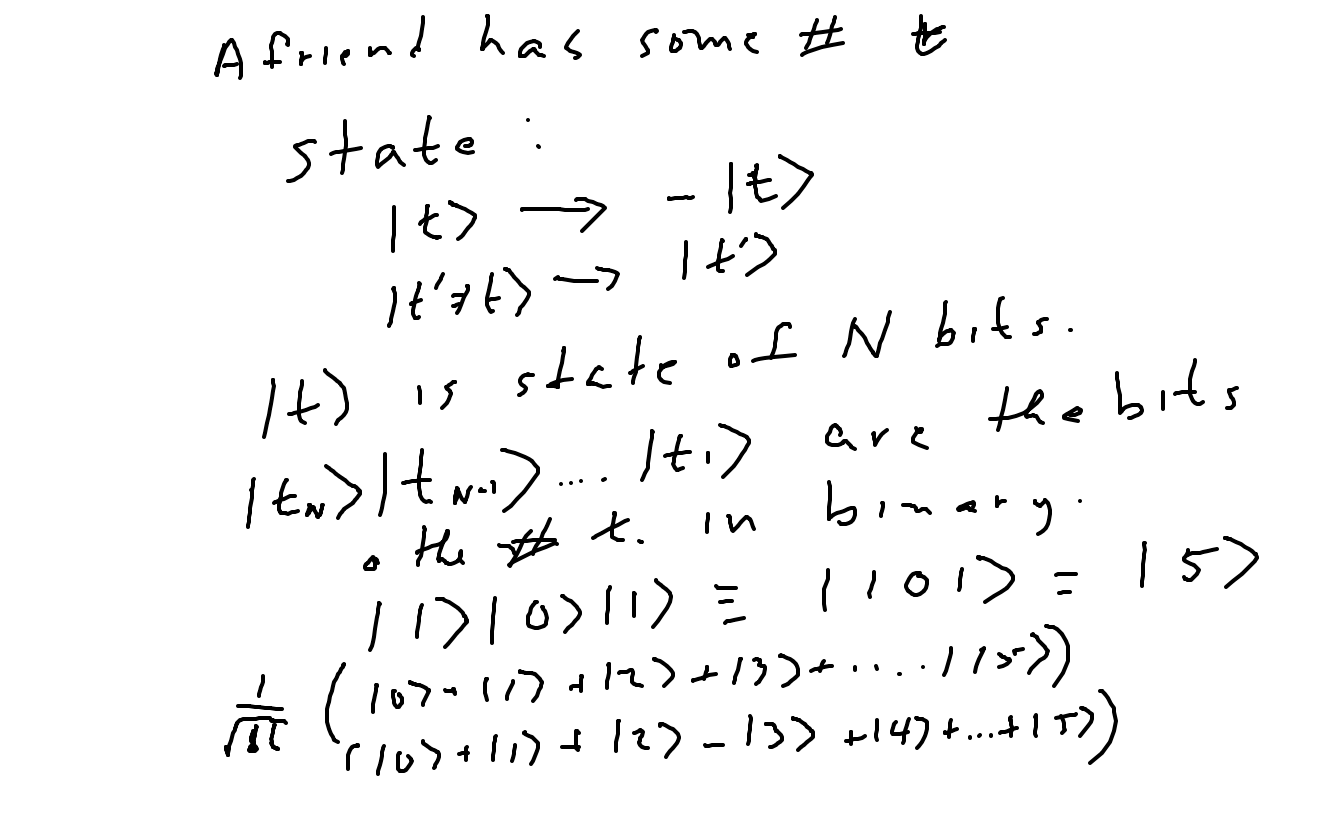 A friend has some # t
state :
|t⟩ → - |t⟩
|t'≠t⟩ → |t'⟩
|t⟩ is state of N bits.
|t_N⟩|t_{N-1}⟩.... |t_1⟩ are the bits
o the # t. in binary.
|1⟩|0⟩|1⟩ ≡ |101⟩ = |5⟩
1/√11 (|0⟩+|1⟩+|2⟩+|3⟩+.....|15⟩)
(|0⟩+|1⟩+|2⟩-|3⟩+|4⟩+...+|15⟩)